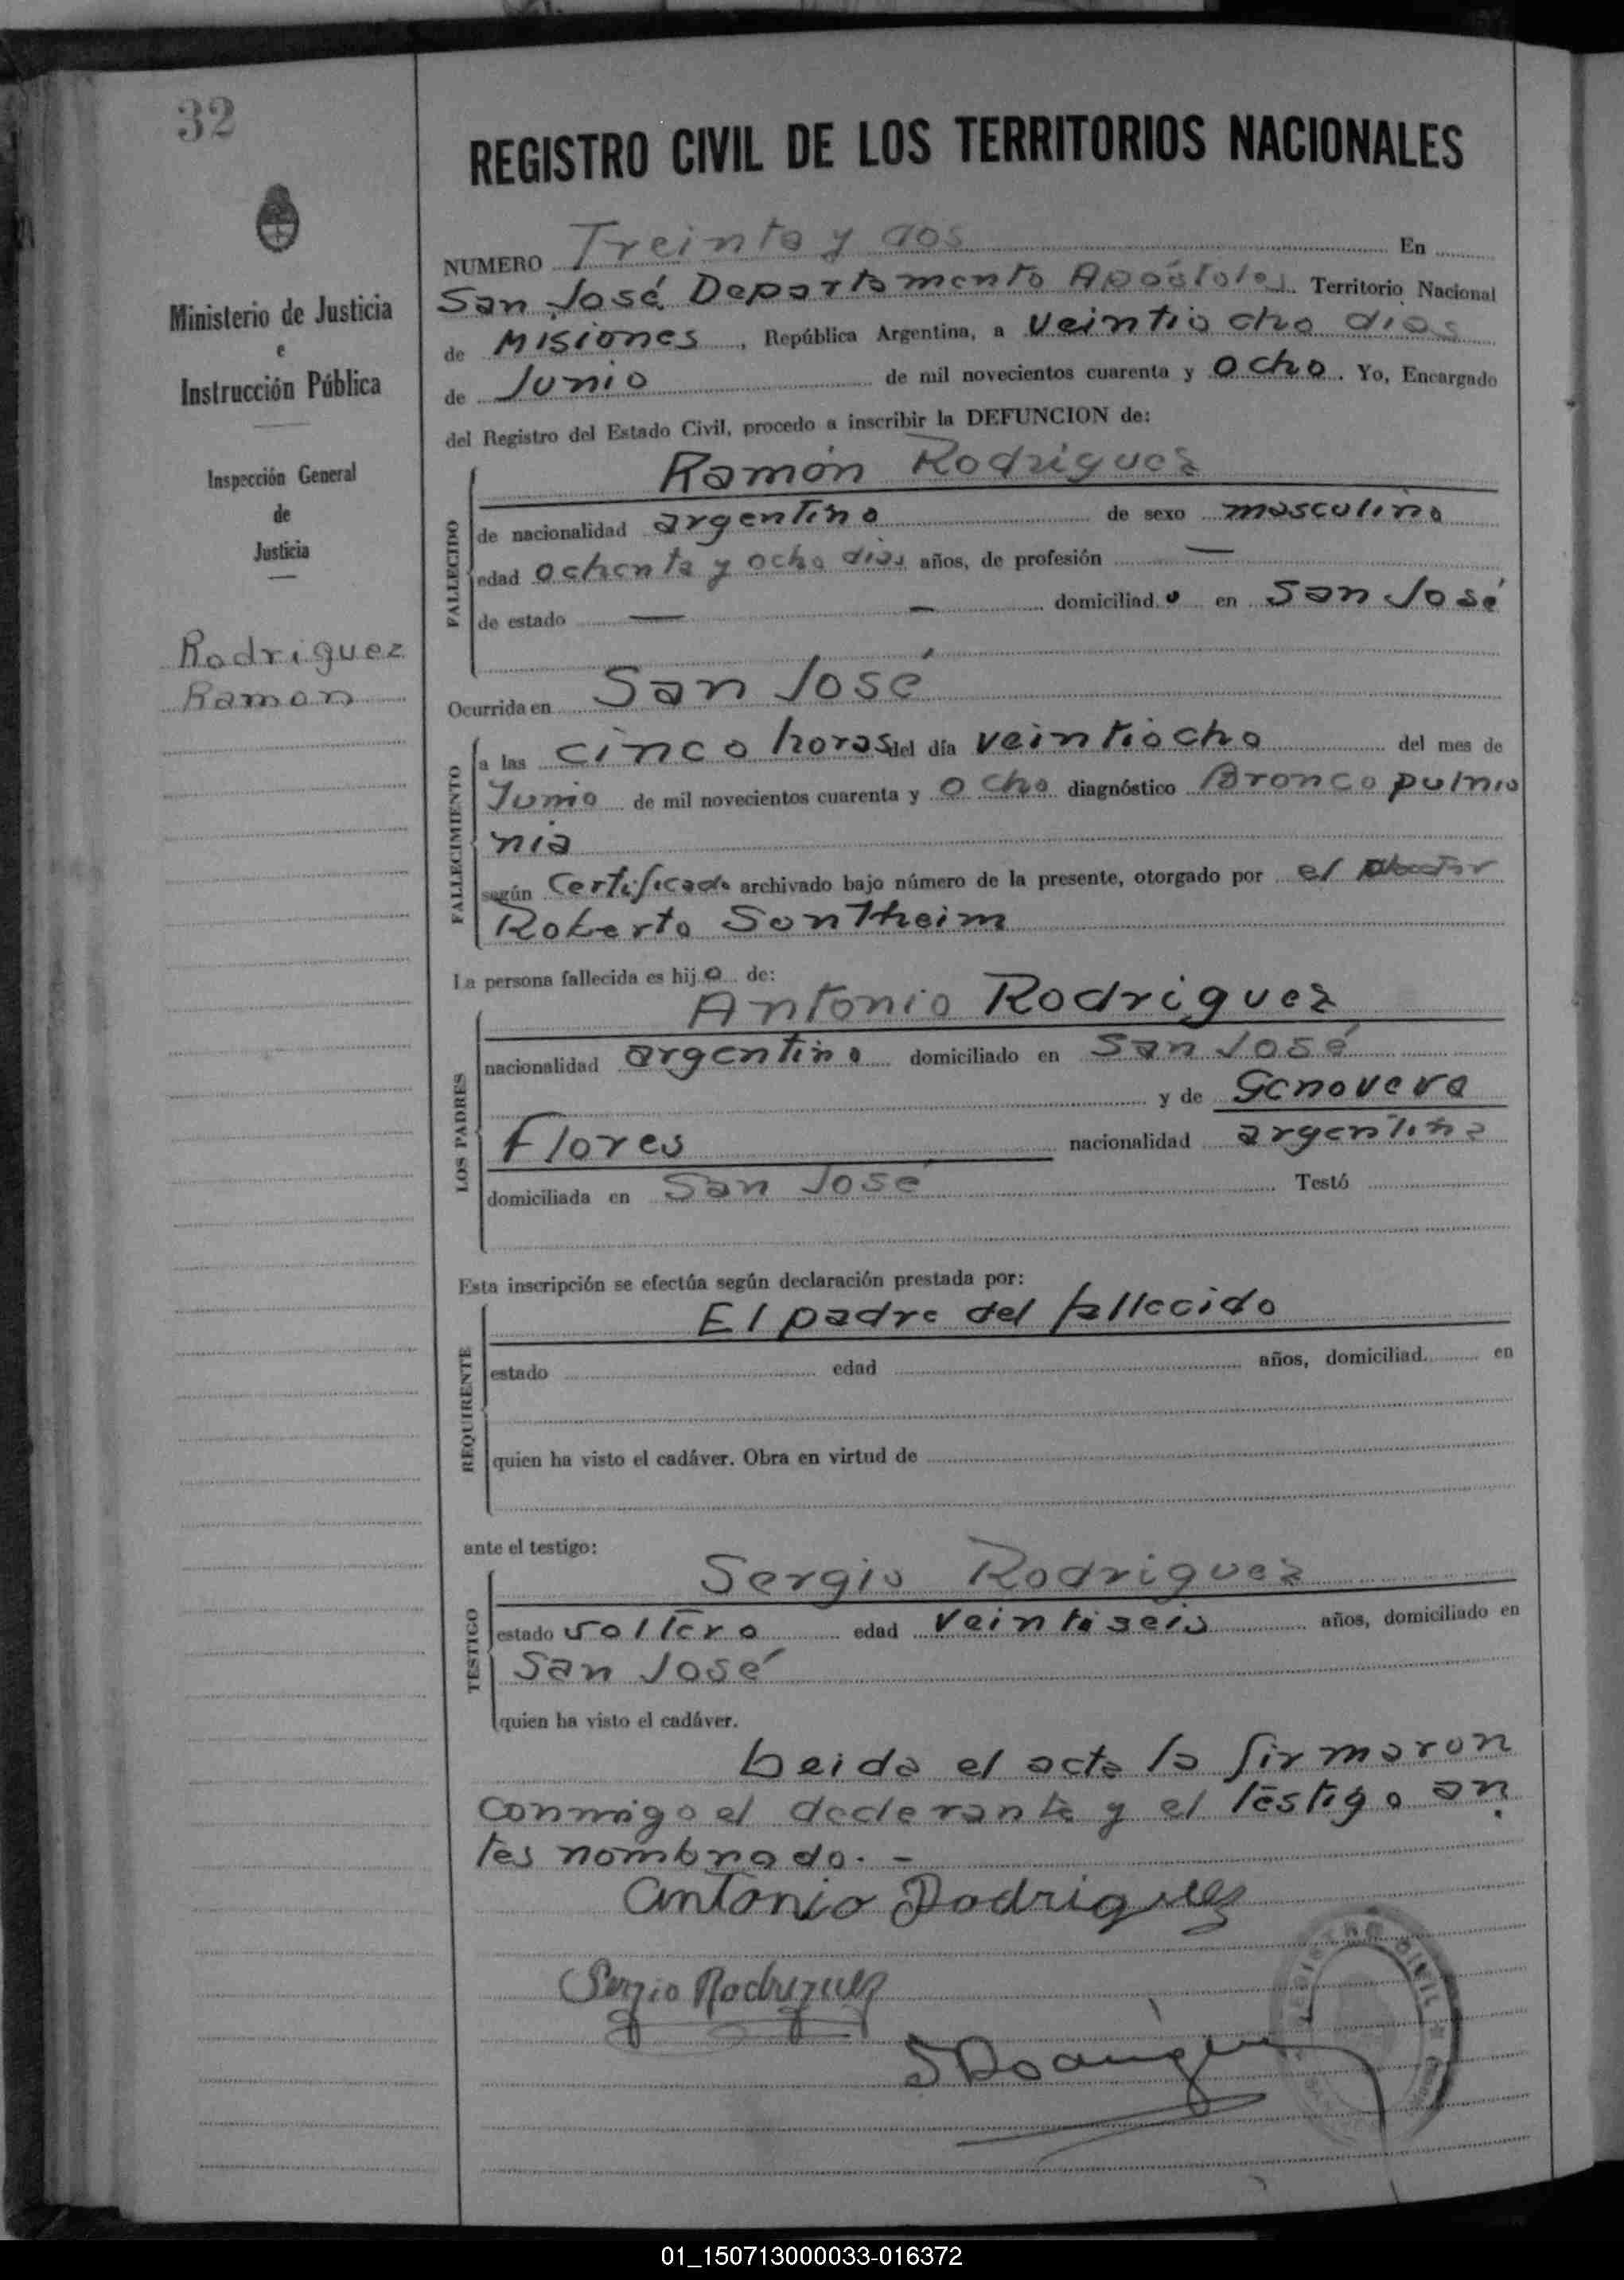 32
REGISTRO CIVIL DE LOS TERRITORIOS NACIONALES
NUMERO Treinta y dos En
San José Departamento Apóstoles Territorio Nacional
de Misiones, República Argentina, a veintiocho dias
de Junio de mil novecientos cuarenta y ocho. Yo, Encargado
del Registro del Estado Civil, procedo a inscribir la DEFUNCION de:
Ministerio de Justicia
e
Instrucción Pública
Inspección General
de
Justicia
Rodriguez
Ramon
FALLECIDO
Ramón Rodriguez
de nacionalidad argentino de sexo masculino
edad ochenta y ocho dias años, de profesión —
de estado — — domiciliado en San José
Ocurrida en San José
FALLECIMIENTO
a las cinco horas del día veintiocho del mes de
Junio de mil novecientos cuarenta y ocho diagnóstico Broncopulmo
nia
según Certificado archivado bajo número de la presente, otorgado por el
Roberto Sontheim
La persona fallecida es hijo de:
LOS PADRES
Antonio Rodriguez
nacionalidad argentino domiciliado en San José
y de Genoveva
Flores nacionalidad argentina
domiciliada en San José Testó
Esta inscripción se efectúa según declaración prestada por:
REQUIRENTE
El padre del fallecido
estado edad años, domiciliad en
quien ha visto el cadáver. Obra en virtud de
ante el testigo:
TESTIGO
Sergio Rodriguez
estado soltero edad veintiseis años, domiciliado en
San José
quien ha visto el cadáver.
Leida el acta la firmaron
conmigo el declarante y el testigo an
tes nombrado. -
Antonio Rodriguez
Sergio Rodriguez
REGISTRO CIVIL
01_150713000033-016372